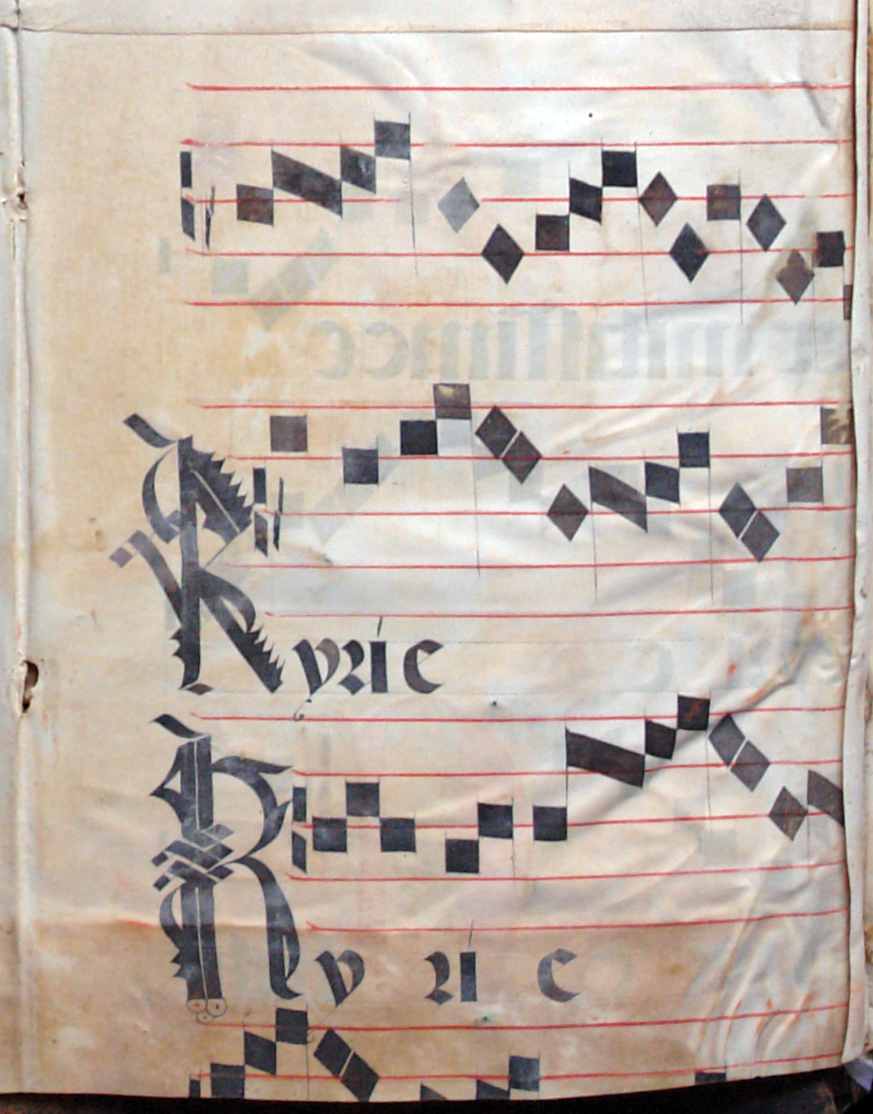 Kyrie
Kyrie